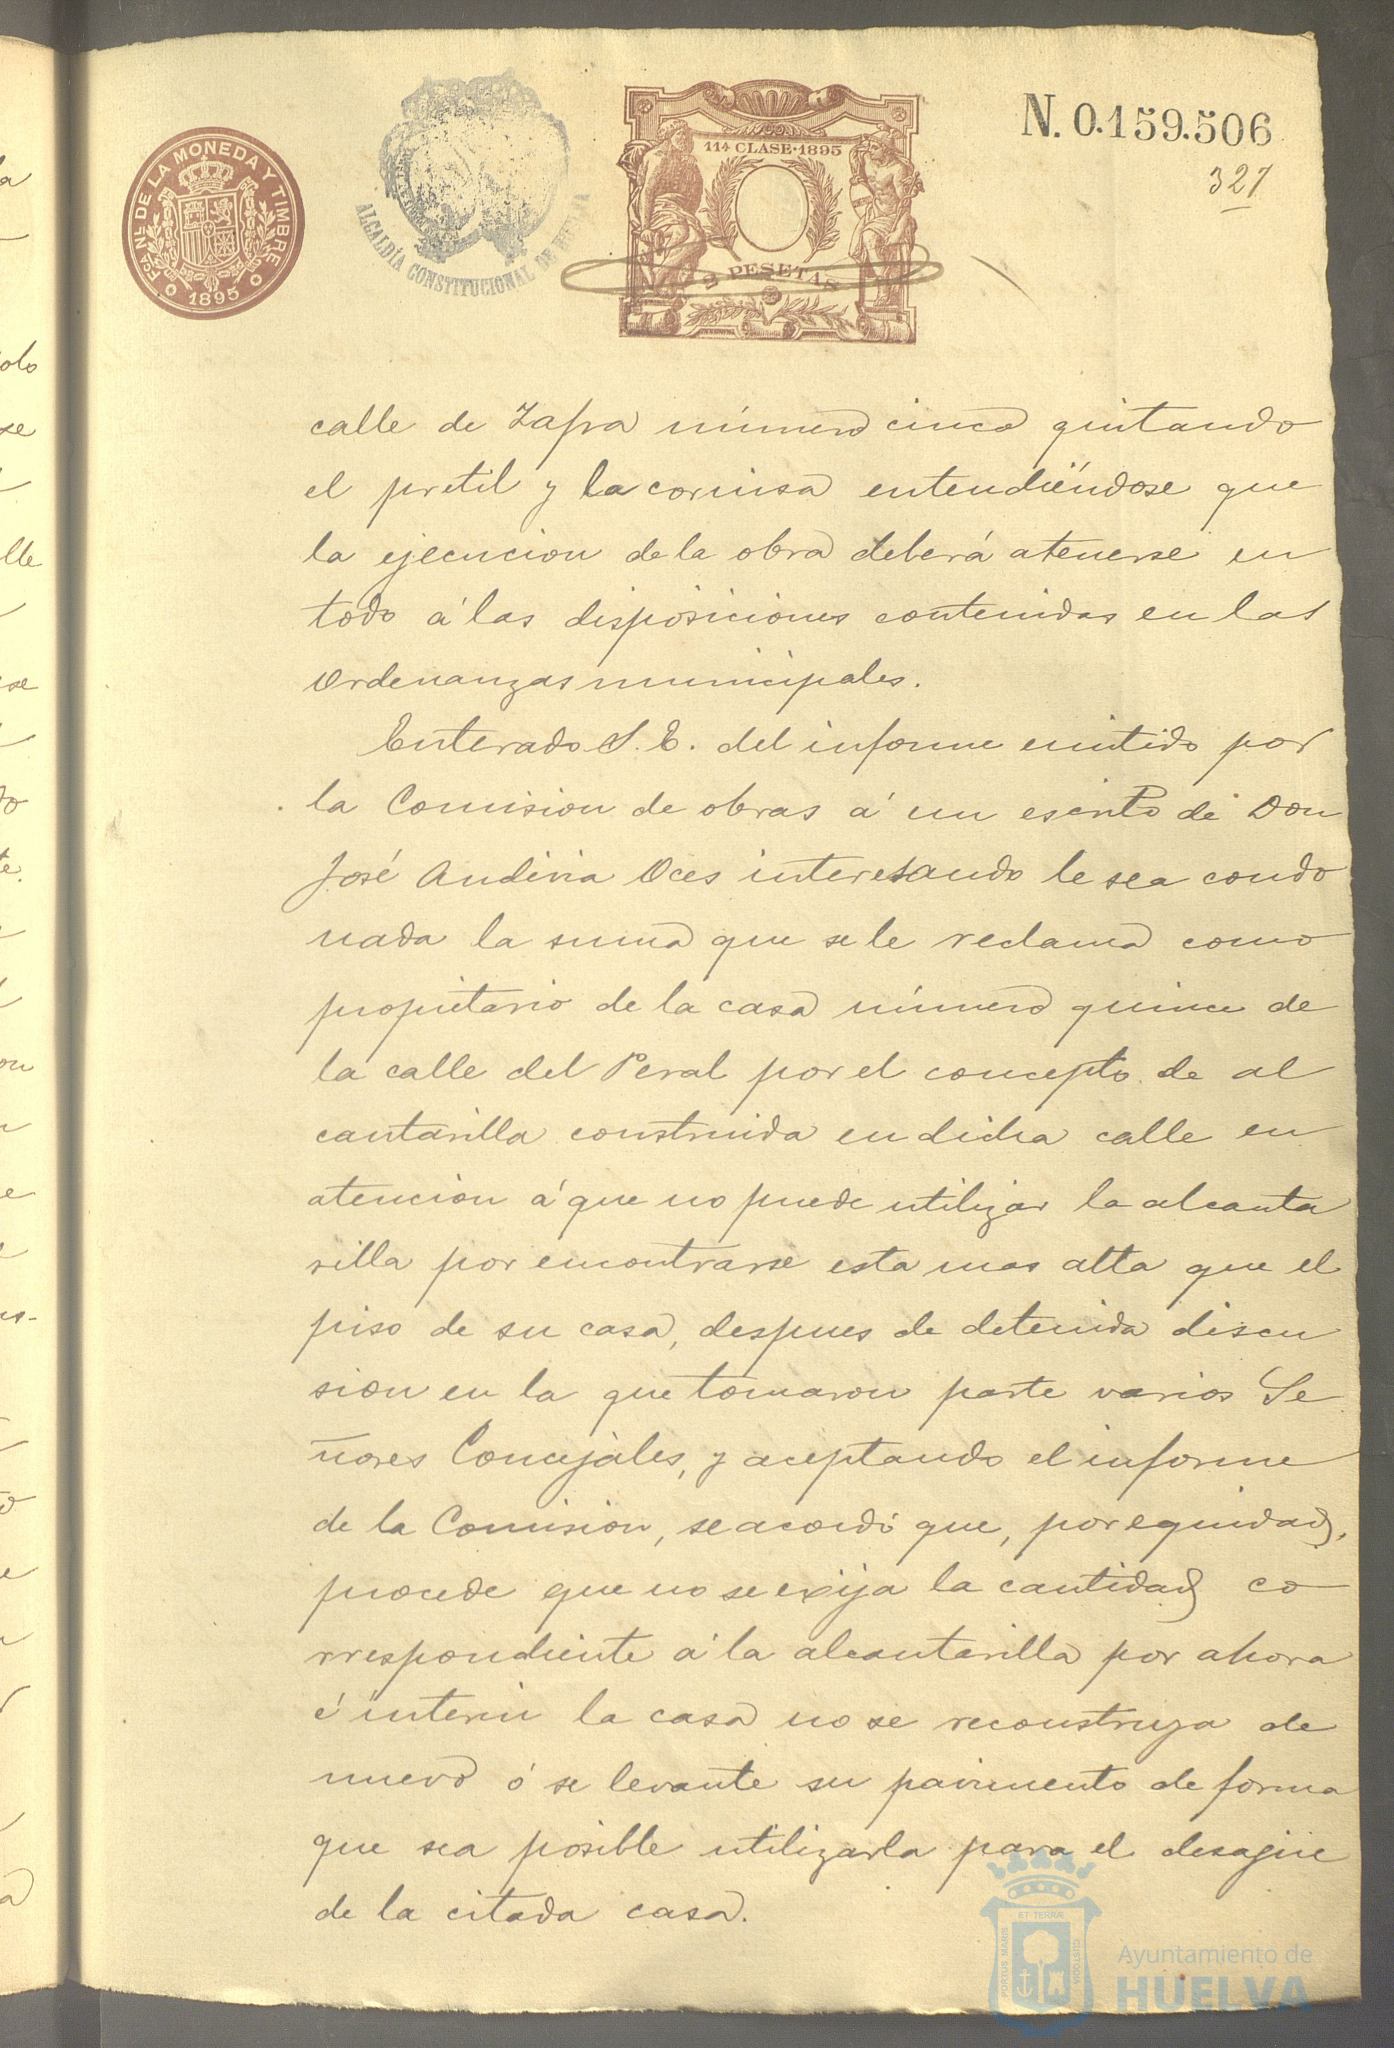 N. 0.159.506
327
Fca. Nl. DE LA MONEDA Y TIMBRE
1895
ALCALDÍA CONSTITUCIONAL DE HUELVA
11ª CLASE·1895
2 PESETAS
calle de Zafra número cinco quitando
el pretil y la cornisa entendiéndose que
la ejecucion de la obra deberá atenerse en
todo á las disposiciones contenidas en las
Ordenanzas municipales.
Enterado S. E. del informe emitido por
la Comision de obras á un escrito de Don
José Andivia Oces interesando le sea condo
nada la suma que se le reclama como
propietario de la casa número quince de
la calle del Peral por el concepto de al
cantarilla construida en dicha calle en
atencion á que no puede utilizar la alcanta
rilla por encontrarse esta mas alta que el
piso de su casa, despues de detenida discu
sion en la que tomaron parte varios Se
ñores Concejales, y aceptando el informe
de la Comision, se acordó que, por equidad,
procede que no se exija la cantidad co
rrespondiente á la alcantarilla por ahora
é interin la casa no se reconstruya de
nuevo ó se levante su pavimento de forma
que sea posible utilizarla para el desagüe
de la citada casa.
PORTUS MARIS ET TERRÆ CUSTODIA
Ayuntamiento de
HUELVA